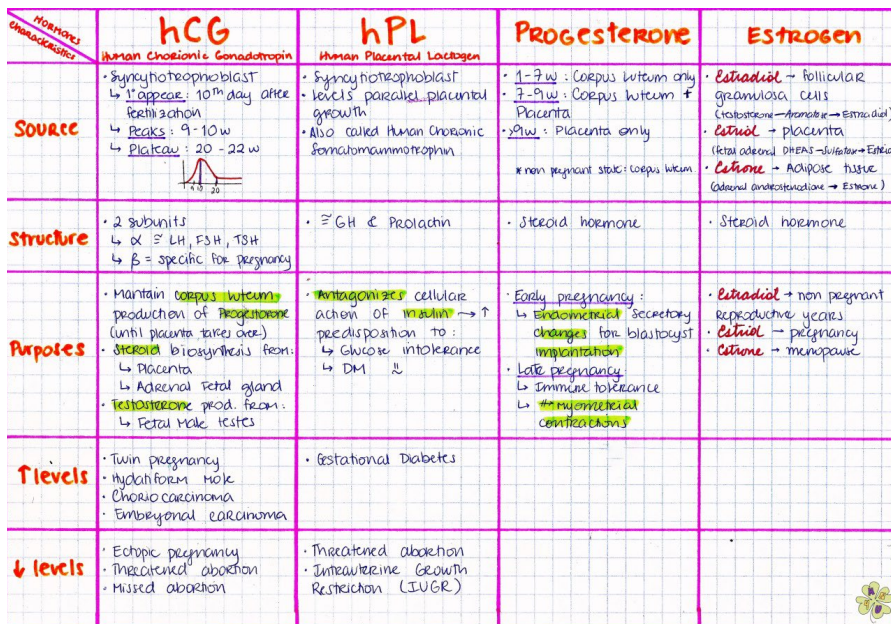 Hormones
Characteristics
hCG
Human Chorionic Gonadotropin
hPL
Human Placental Lactogen
Progesterone
Estrogen
Source
• Syncytiotrophoblast
↳ 1° appear: 10th day after
fertilization
↳ Peaks: 9-10w
↳ Plateau: 20-22w
9 10 20
• Syncytiotrophoblast
• Levels parallel placental
growth
• Also called Human Chorionic
Somatomammotrophin
• 1-7w: Corpus luteum only
• 7-9w: Corpus luteum +
Placenta
• >9w: Placenta only
* non pregnant state: corpus luteum
• Estradiol → follicular
granulosa cells
(testosterone—Aromatase→Estradiol)
• Estriol → placenta
(fetal adrenal DHEAS→Sulfatase→Estriol
• Estrone → Adipose tissue
(adrenal androstenedione → Estrone)
Structure
• 2 subunits
↳ α ≅ LH, FSH, TSH
↳ β = specific for pregnancy
• ≅ GH & Prolactin
• Steroid hormone
• Steroid hormone
Purposes
• Mantain corpus luteum
production of Progesterone
(until placenta takes over)
• Steroid biosynthesis from:
↳ Placenta
↳ Adrenal Fetal gland
• Testosterone prod. from:
↳ Fetal Male testes
• Antagonizes cellular
action of insulin → ↑
predisposition to:
↳ Glucose intolerance
↳ DM
• Early pregnancy:
↳ Endometrial secretory
changes for blastocyst
implantation
• Late pregnancy
↳ Immune tolerance
↳ Myometrial
contractions
• Estradiol → non pregnant
reproductive years
• Estriol → pregnancy
• Estrone → menopause
↑ levels
• Twin pregnancy
• Hydatiform mole
• Choriocarcinoma
• Embryonal carcinoma
• Gestational Diabetes
↓ levels
• Ectopic pregnancy
• Threatened abortion
• Missed abortion
• Threatened abortion
• Intrauterine Growth
Restriction (IUGR)